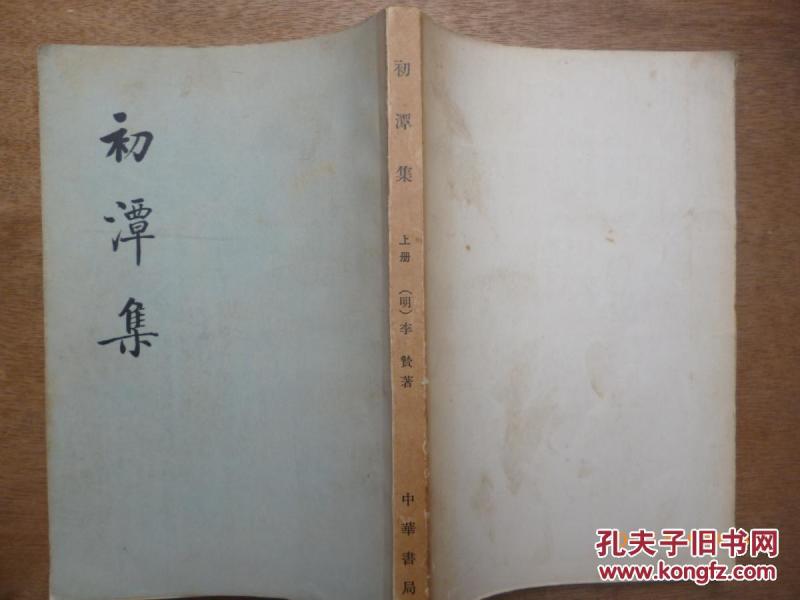 初潭集
初潭集
上册
（明）李贄著
中華書局
孔夫子旧书网
www.kongfz.com